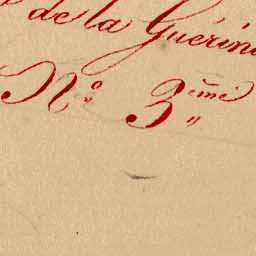 de la Guérin
N.º 3.ème